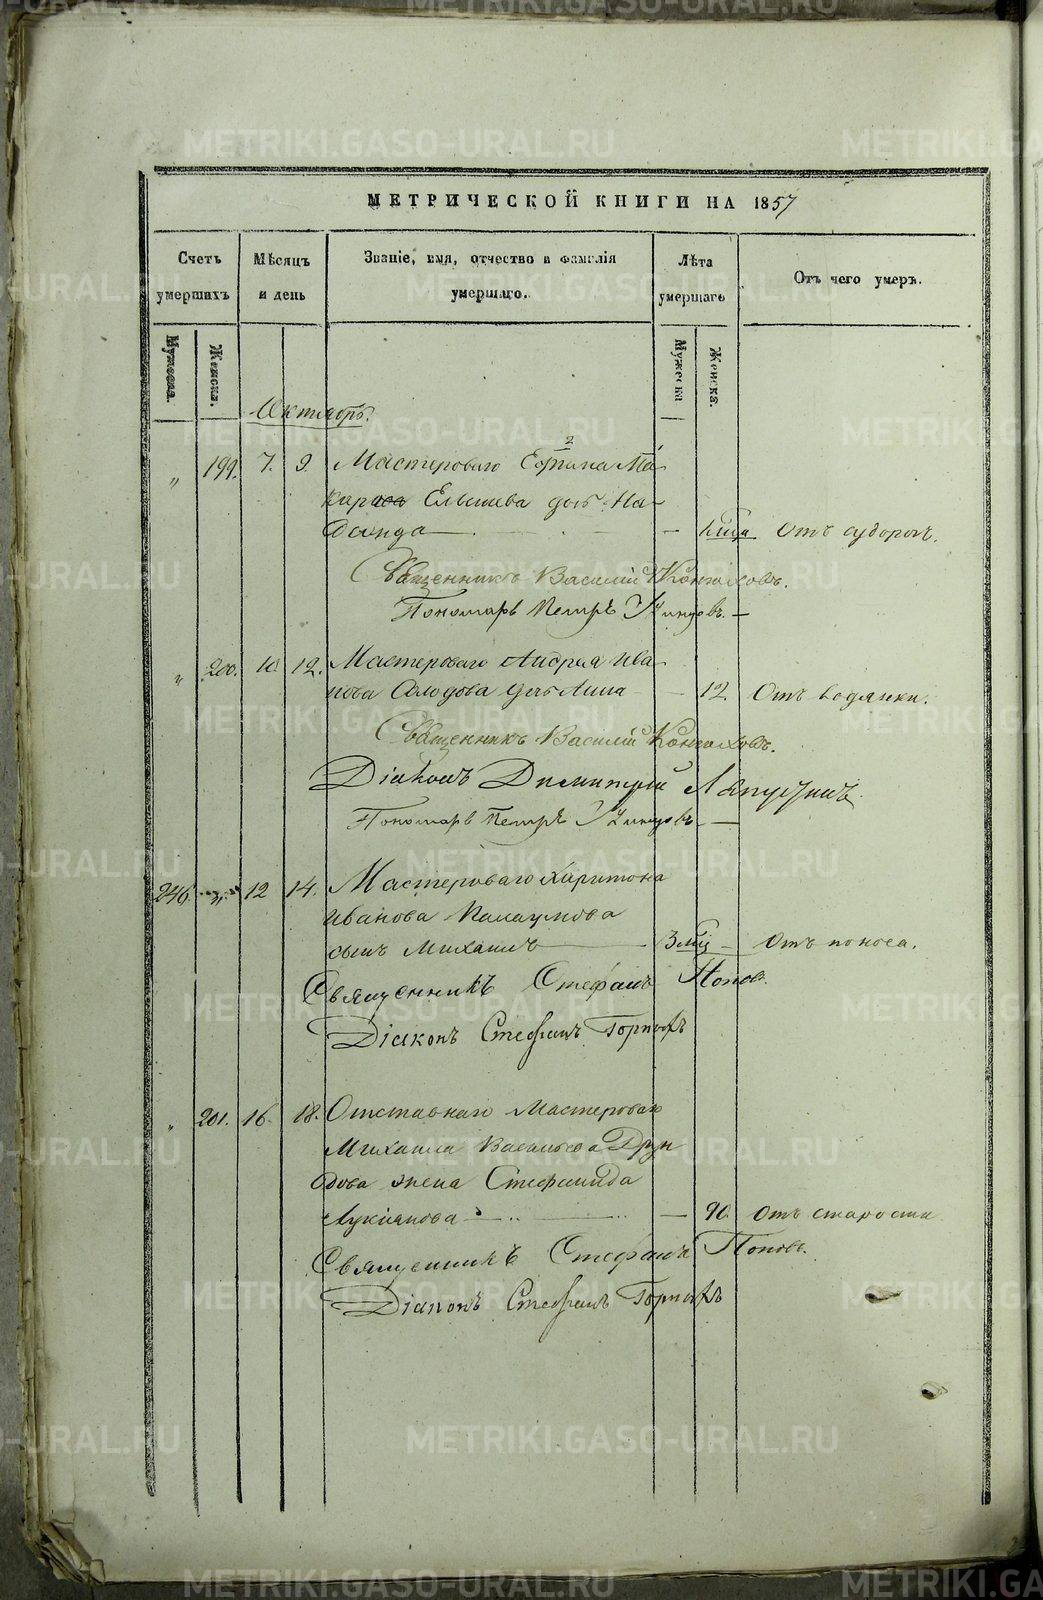 METRIKI.GASO-URAL.RU
МЕТРИЧЕСКОЙ КНИГИ НА 1857
Счетъ умершихъ
Мѣсяцъ и день
Званіе, имя, отчество и фамилія умершаго.
Лѣта умершаго
Отъ чего умеръ.
Мужеска.
Женска.
Мужеска
Женска.
Октябрь.
„ 199. 7. 9. Мастероваго Ма-
Елышева дочь На-
— Отъ судорогъ.
Священникъ Василій
Пономарь Петръ
„ 200. 10. 12. Мастероваго Андрея Ива-
нова дочь Анна — 12. Отъ водянки.
Священникъ Василій
Діаконъ Димитрій Лапустинъ.
Пономарь Петръ
246. „ 12 14. Мастероваго Харитона
Иванова
сынъ Михаилъ — 3 мѣц — Отъ поноса.
Священникъ Стефанъ Поповъ.
Діаконъ Стефанъ Горныхъ
„ 201. 16. 18. Отставнаго Мастероваго
Михаила Васильева Друн
дова жена Стефанида
Лукіянова — 90. Отъ старости
Священникъ Стефанъ Поповъ.
Діаконъ Стефанъ Горныхъ